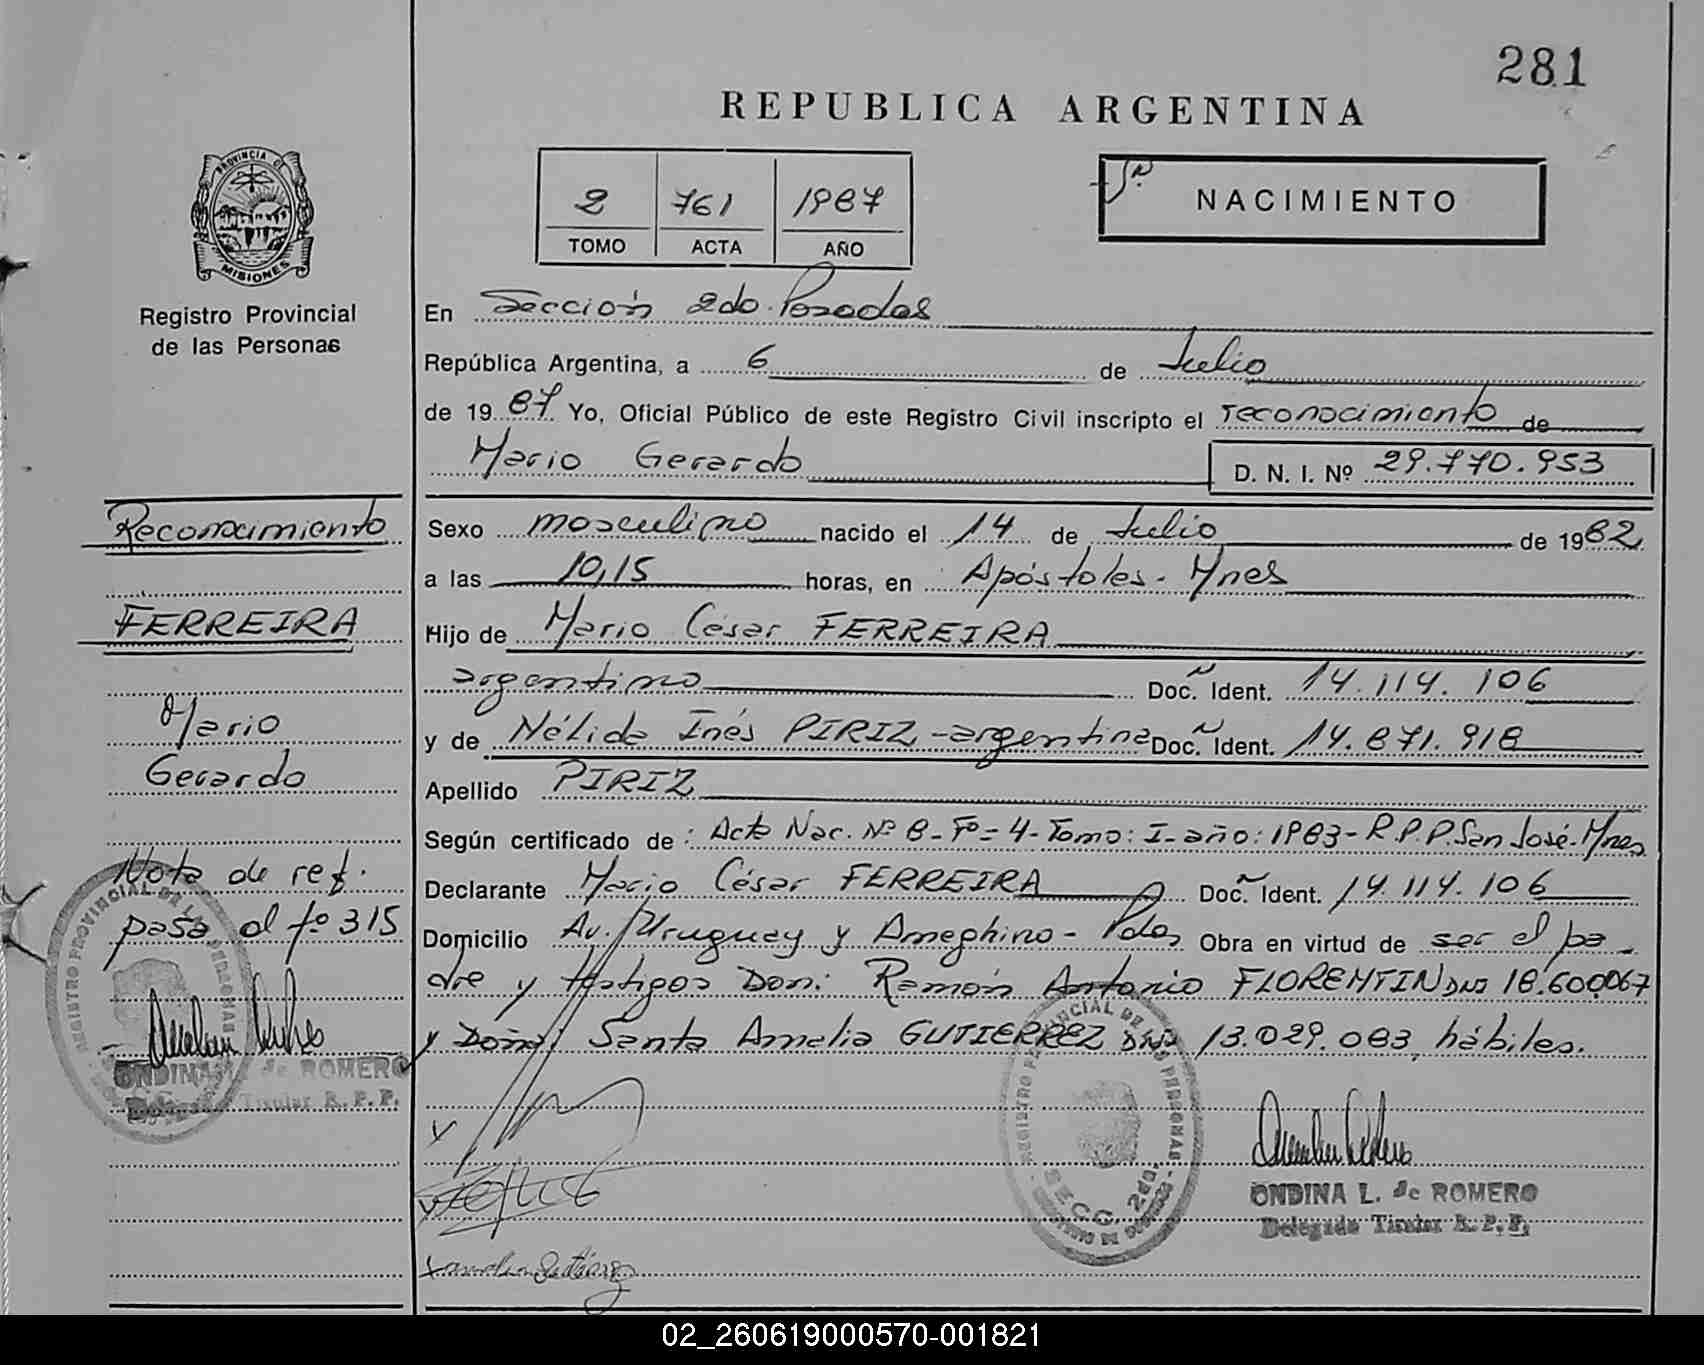 281
REPUBLICA ARGENTINA
PROVINCIA DE
MISIONES
Registro Provincial
de las Personas
2 761 1987
TOMO ACTA AÑO
NACIMIENTO
En Sección 2da. Posadas
República Argentina, a 6 de Julio
de 1987 Yo, Oficial Público de este Registro Civil inscripto el reconocimiento de
Mario Gerardo D. N. I. Nº 29.770.953
Sexo masculino nacido el 14 de Julio de 1982
a las 10,15 horas, en Apóstoles - Mnes
Hijo de Mario César FERREIRA
argentino Doc. Ident. 14.114.106
y de Nélida Inés PIRIZ - argentina Doc. Ident. 14.871.918
Apellido PIRIZ
Según certificado de : Acta Nac. Nº 8 - Fº = 4 - Tomo: I - año: 1983 - R.P.P. San José - Mnes
Declarante Mario César FERREIRA Doc. Ident. 14.114.106
Domicilio Av. Uruguay y Ameghino - Pdas Obra en virtud de ser el pa
dre y testigos Don: Ramón Antonio FLORENTIN DNI 18.600067
y Doña: Santa Amelia GUTIERREZ DNI 13.029.083, hábiles.
Reconocimiento
FERREIRA
Mario
Gerardo
Nota de ref.
pasa al fº 315
REGISTRO PROVINCIAL DE LAS PERSONAS
ONDINA L. de ROMERO
Delegada Titular R. P. P.
REGISTRO PROVINCIAL DE LAS PERSONAS
SECC. 2da.
ONDINA L. de ROMERO
Delegada Titular R. P. P.
02_260619000570-001821